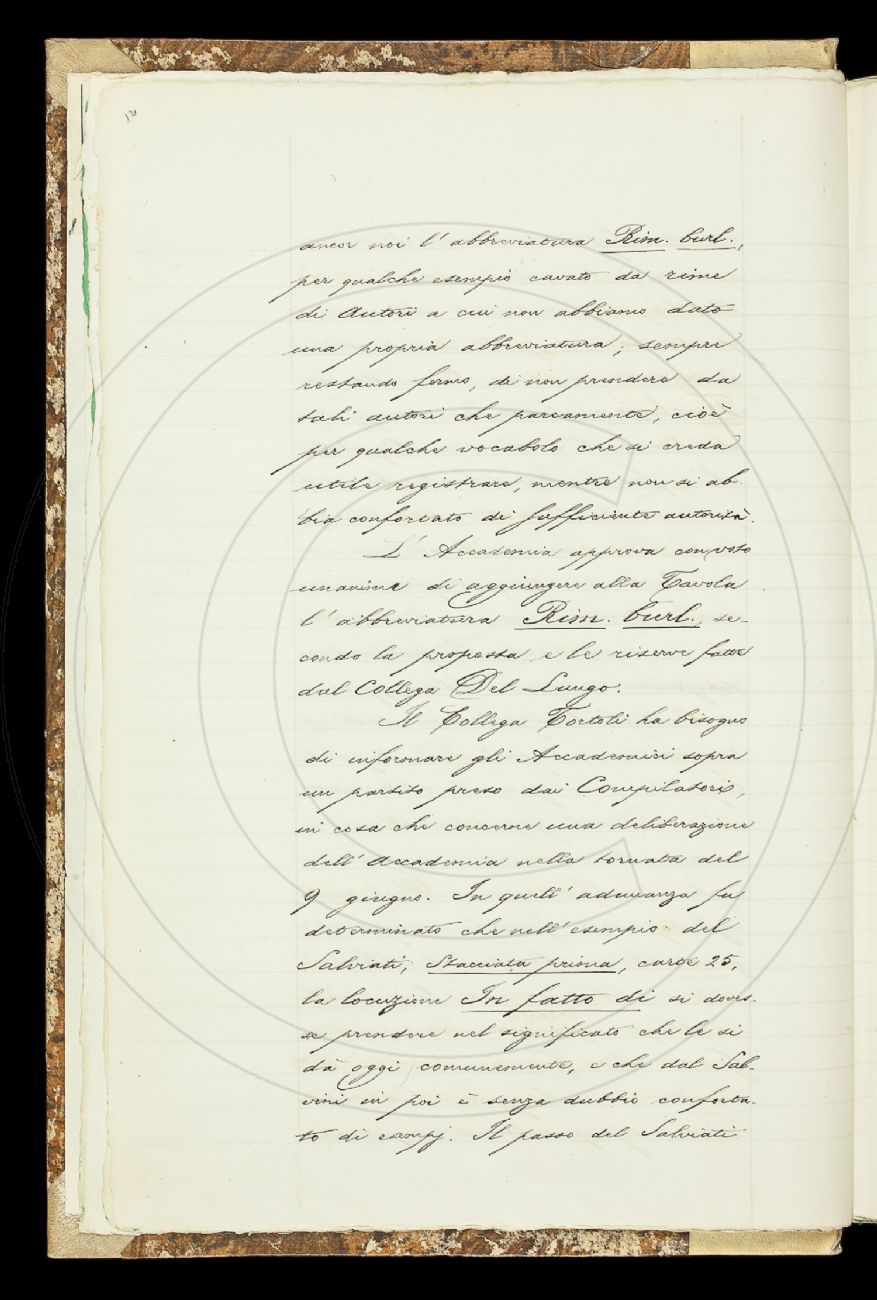 ancor noi l'abbreviatura Rim. burl.,
per qualche esempio cavato da rime
di Autori a cui non abbiamo dato
una propria abbreviatura; sempre
restando fermo, di non prendere da
tali autori che parcamente, cioè
per qualche vocabolo che si creda
utile registrare, mentre non si ab-
bia confortato di sufficiente autorità.
L'Accademia approva con voto
unanime di aggiungere alla Tavola
l'abbreviatura Rim. burl., se-
condo la proposta e le riserve fatte
dal Collega Del Lungo.
Il Collega Tortoli ha bisogno
di informare gli Accademici sopra
un partito preso dai Compilatori,
in cosa che concerne una deliberazione
dell'Accademia nella tornata del
9 giugno. In quell'adunanza fu
determinato che nell'esempio del
Salviati, Stacciata prima, carte 25,
la locuzione In fatto di si doves-
se prendere nel significato che le si
dà oggi comunemente, e che dal Sal-
vini in poi è senza dubbio conforta-
to di esempj. Il passo del Salviati